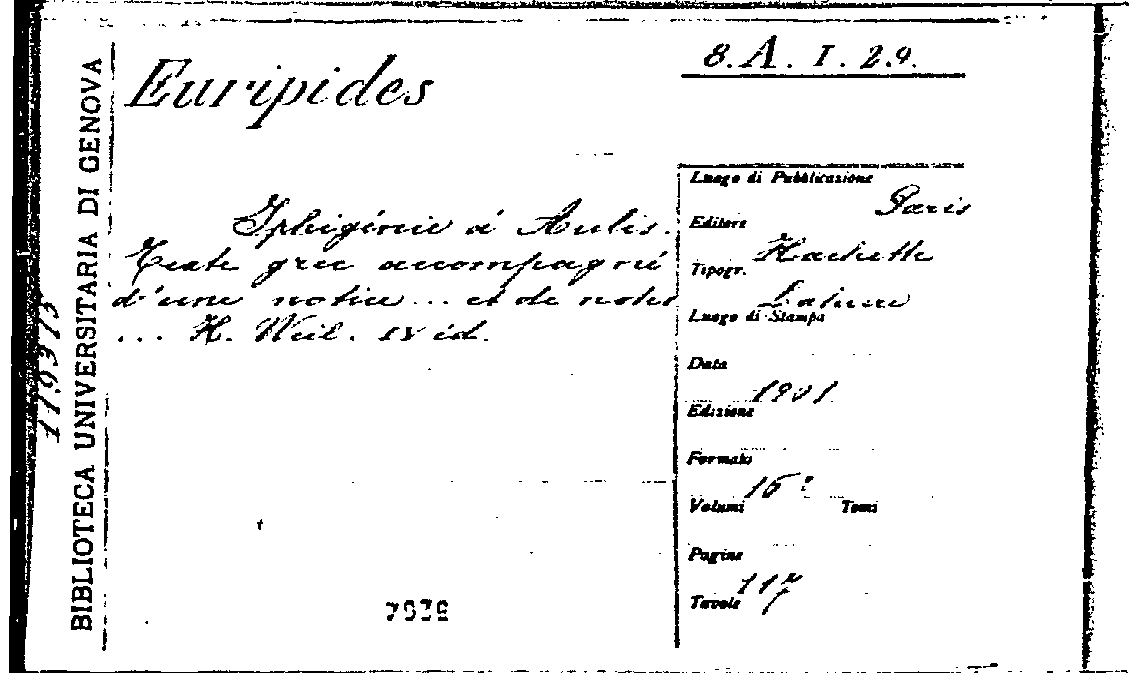 8. A. I. 29.
Euripides
BIBLIOTECA UNIVERSITARIA DI GENOVA
Iphigénie à Aulis.
Texte grec accompagné
d'une notice ... et de notes
... H. Weil. IV éd.
Luogo di Pubblicazione
Paris
Editore
Hachette
Tipogr.
Lahure
Luogo di Stampa
Data
1901
Edizione
Formato
16º
Volumi Tomi
Pagine
117
Tavole